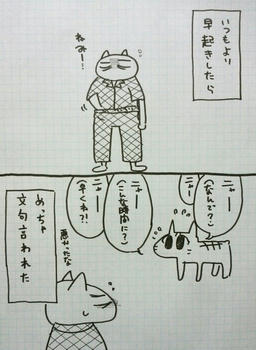 いつもより
早起きしたら
ねみー!
ニャー
(なんで?)
ニャー
(こんな時間に?)
ニャー
(早くね?!
めっちゃ
文句言われた
悪かったな